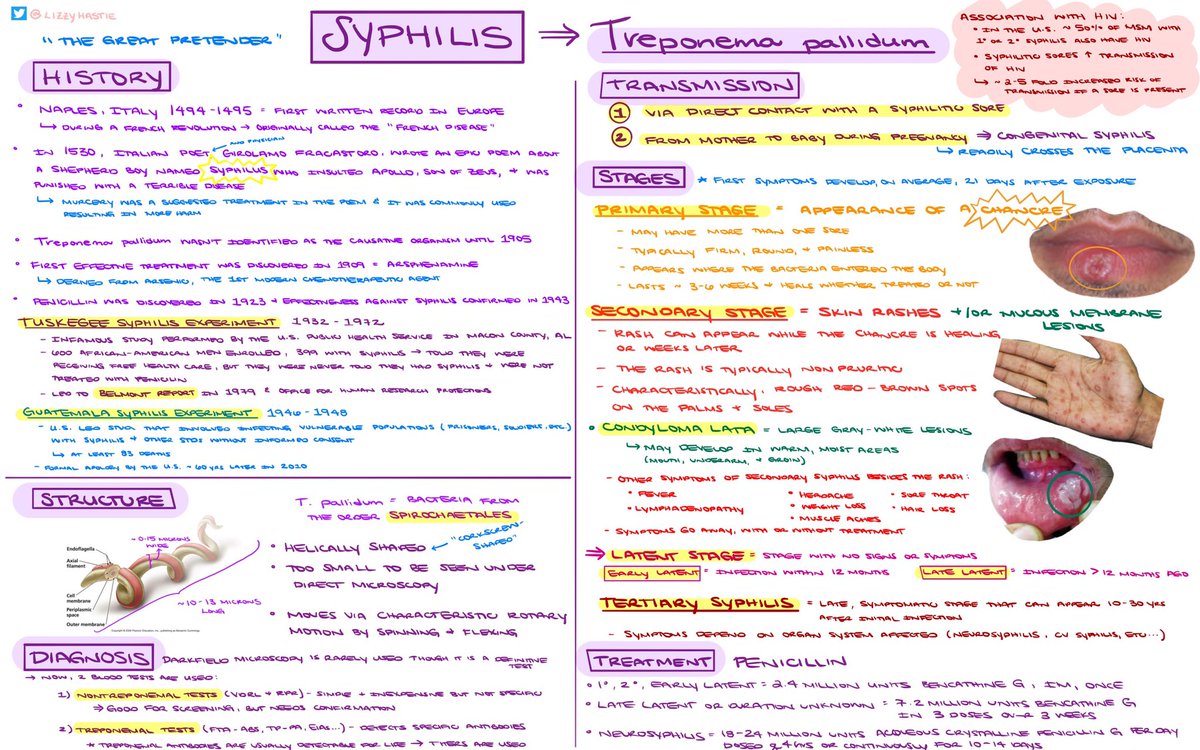 @LIZZYHASTIE
"THE GREAT PRETENDER"
SYPHILIS ⇒ Treponema pallidum
ASSOCIATION WITH HIV:
• IN THE U.S. ~50% OF MSM WITH
1° OR 2° SYPHILIS ALSO HAVE HIV
• SYPHILITIC SORES ↑ TRANSMISSION
OF HIV
↳ ~2-5 FOLD INCREASED RISK OF
TRANSMISSION IF A SORE IS PRESENT
HISTORY
• NAPLES, ITALY 1494-1495 = FIRST WRITTEN RECORD IN EUROPE
↳ DURING A FRENCH REVOLUTION → ORIGINALLY CALLED THE "FRENCH DISEASE"
AND PHYSICIAN
• IN 1530, ITALIAN POET GIROLAMO FRACASTORO, WROTE AN EPIC POEM ABOUT
A SHEPHERD BOY NAMED SYPHILUS WHO INSULTED APOLLO, SON OF ZEUS, + WAS
PUNISHED WITH A TERRIBLE DISEASE
↳ MURCERY WAS A SUGGESTED TREATMENT IN THE POEM & IT WAS COMMONLY USED
RESULTING IN MORE HARM
• Treponema pallidum WASN'T IDENTIFIED AS THE CAUSATIVE ORGANISM UNTIL 1905
• FIRST EFFECTIVE TREATMENT WAS DISCOVERED IN 1909 = ARSPHENAMINE
↳ DERIVED FROM ARSENIC, THE 1ST MODERN CHEMOTHERAPEUTIC AGENT
• PENICILLIN WAS DISCOVERED IN 1923 + EFFECTIVENESS AGAINST SYPHILIS CONFIRMED IN 1943
TUSKEGEE SYPHILIS EXPERIMENT 1932-1972
- INFAMOUS STUDY PERFORMED BY THE U.S. PUBLIC HEALTH SERVICE IN MACON COUNTY, AL
- 600 AFRICAN-AMERICAN MEN ENROLLED, 399 WITH SYPHILIS → TOLD THEY WERE
RECEIVING FREE HEALTH CARE, BUT THEY WERE NEVER TOLD THEY HAD SYPHILIS + WERE NOT
TREATED WITH PENICILIN
- LED TO BELMONT REPORT IN 1979 & OFFICE FOR HUMAN RESEARCH PROTECTIONS
GUATEMALA SYPHILIS EXPERIMENT 1946-1948
- U.S. LED STUDY THAT INVOLVED INFECTING VULNERABLE POPULATIONS (PRISONERS, SOLDIERS, ETC.)
WITH SYPHILIS + OTHER STDS WITHOUT INFORMED CONSENT
↳ AT LEAST 83 DEATHS
- FORMAL APOLOGY BY THE U.S. ~60 YRS LATER IN 2010
STRUCTURE
T. pallidum = BACTERIA FROM
THE ORDER SPIROCHAETALES
• HELICALLY SHAPED ← "CORKSCREW-
SHAPED"
• TOO SMALL TO BE SEEN UNDER
DIRECT MICROSCOPY
• MOVES VIA CHARACTERISTIC ROTARY
MOTION BY SPINNING + FLEXING
~0.15 MICRONS
WIDE
~10-13 MICRONS
LONG
Endoflagella
Axial
filament
Cell
membrane
Periplasmic
space
Outer membrane
DIAGNOSIS DARKFIELD MICROSCOPY IS RARELY USED THOUGH IT IS A DEFINITIVE
TEST
→ NOW, 2 BLOOD TESTS ARE USED:
1) NONTREPONEMAL TESTS (VDRL & RPR) - SIMPLE + INEXPENSIVE BUT NOT SPECIFIC
⇒ GOOD FOR SCREENING, BUT NEEDS CONFIRMATION
2) TREPONEMAL TESTS (FTA-ABS, TP-PA, EIAs...) - DETECTS SPECIFIC ANTIBODIES
* TREPONEMAL ANTIBODIES ARE USUALLY DETECTABLE FOR LIFE → TITERS ARE USED
TRANSMISSION
1 VIA DIRECT CONTACT WITH A SYPHILITIC SORE
2 FROM MOTHER TO BABY DURING PREGNANCY ⇒ CONGENITAL SYPHILIS
↳ READILY CROSSES THE PLACENTA
STAGES * FIRST SYMPTOMS DEVELOP, ON AVERAGE, 21 DAYS AFTER EXPOSURE
PRIMARY STAGE = APPEARANCE OF A CHANCRE
- MAY HAVE MORE THAN ONE SORE
- TYPICALLY FIRM, ROUND, & PAINLESS
- APPEARS WHERE THE BACTERIA ENTERED THE BODY
- LASTS ~3-6 WEEKS & HEALS WHETHER TREATED OR NOT
SECONDARY STAGE = SKIN RASHES +/OR MUCOUS MEMBRANE
LESIONS
- RASH CAN APPEAR WHILE THE CHANCRE IS HEALING
OR WEEKS LATER
- THE RASH IS TYPICALLY NON PRURITIC
- CHARACTERISTICALLY, ROUGH RED-BROWN SPOTS
ON THE PALMS + SOLES
• CONDYLOMA LATA = LARGE GRAY-WHITE LESIONS
↳ MAY DEVELOP IN WARM, MOIST AREAS
(MOUTH, UNDERARM, & GROIN)
- OTHER SYMPTOMS OF SECONDARY SYPHILIS BESIDES THE RASH:
• FEVER • HEADACHE • SORE THROAT
• LYMPHADENOPATHY • WEIGHT LOSS • HAIR LOSS
• MUSCLE ACHES
- SYMPTOMS GO AWAY, WITH OR WITHOUT TREATMENT
⇒ LATENT STAGE = STAGE WITH NO SIGNS OR SYMPTOMS
EARLY LATENT = INFECTION WITHIN 12 MONTHS LATE LATENT = INFECTION > 12 MONTHS AGO
TERTIARY SYPHILIS = LATE, SYMPTOMATIC STAGE THAT CAN APPEAR 10-30 YRS
AFTER INITIAL INFECTION
- SYMPTOMS DEPEND ON ORGAN SYSTEM AFFECTED (NEUROSYPHILIS, CV SYPHILIS, ETC...)
TREATMENT PENICILLIN
• 1°, 2°, EARLY LATENT = 2.4 MILLION UNITS BENCATHINE G, IM, ONCE
• LATE LATENT OR DURATION UNKNOWN = 7.2 MILLION UNITS BENCATHINE G
IN 3 DOSES OVER 3 WEEKS
• NEUROSYPHILIS = 18-24 MILLION UNITS AQUEOUS CRYSTALLINE PENICILLIN G PER DAY
DOSED q4hrs OR CONTINUOUSLY FOR 10-14 DAYS